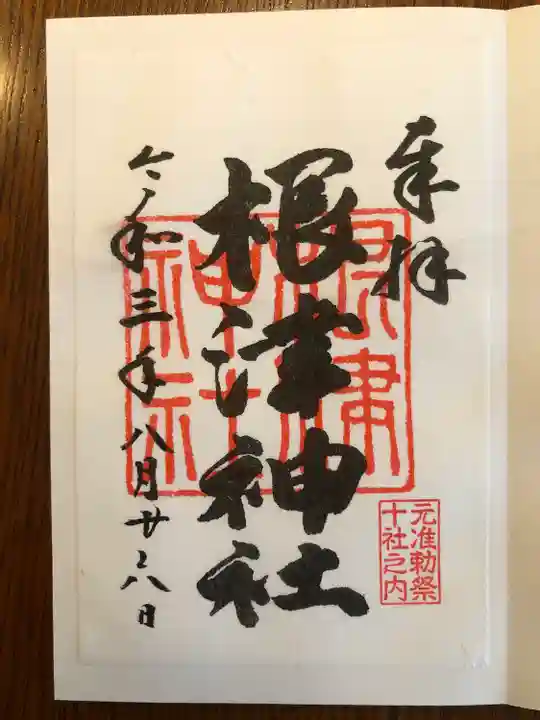 奉拝
根津神社
根津
神社
元准勅祭
十社之内
令和三年八月廿八日